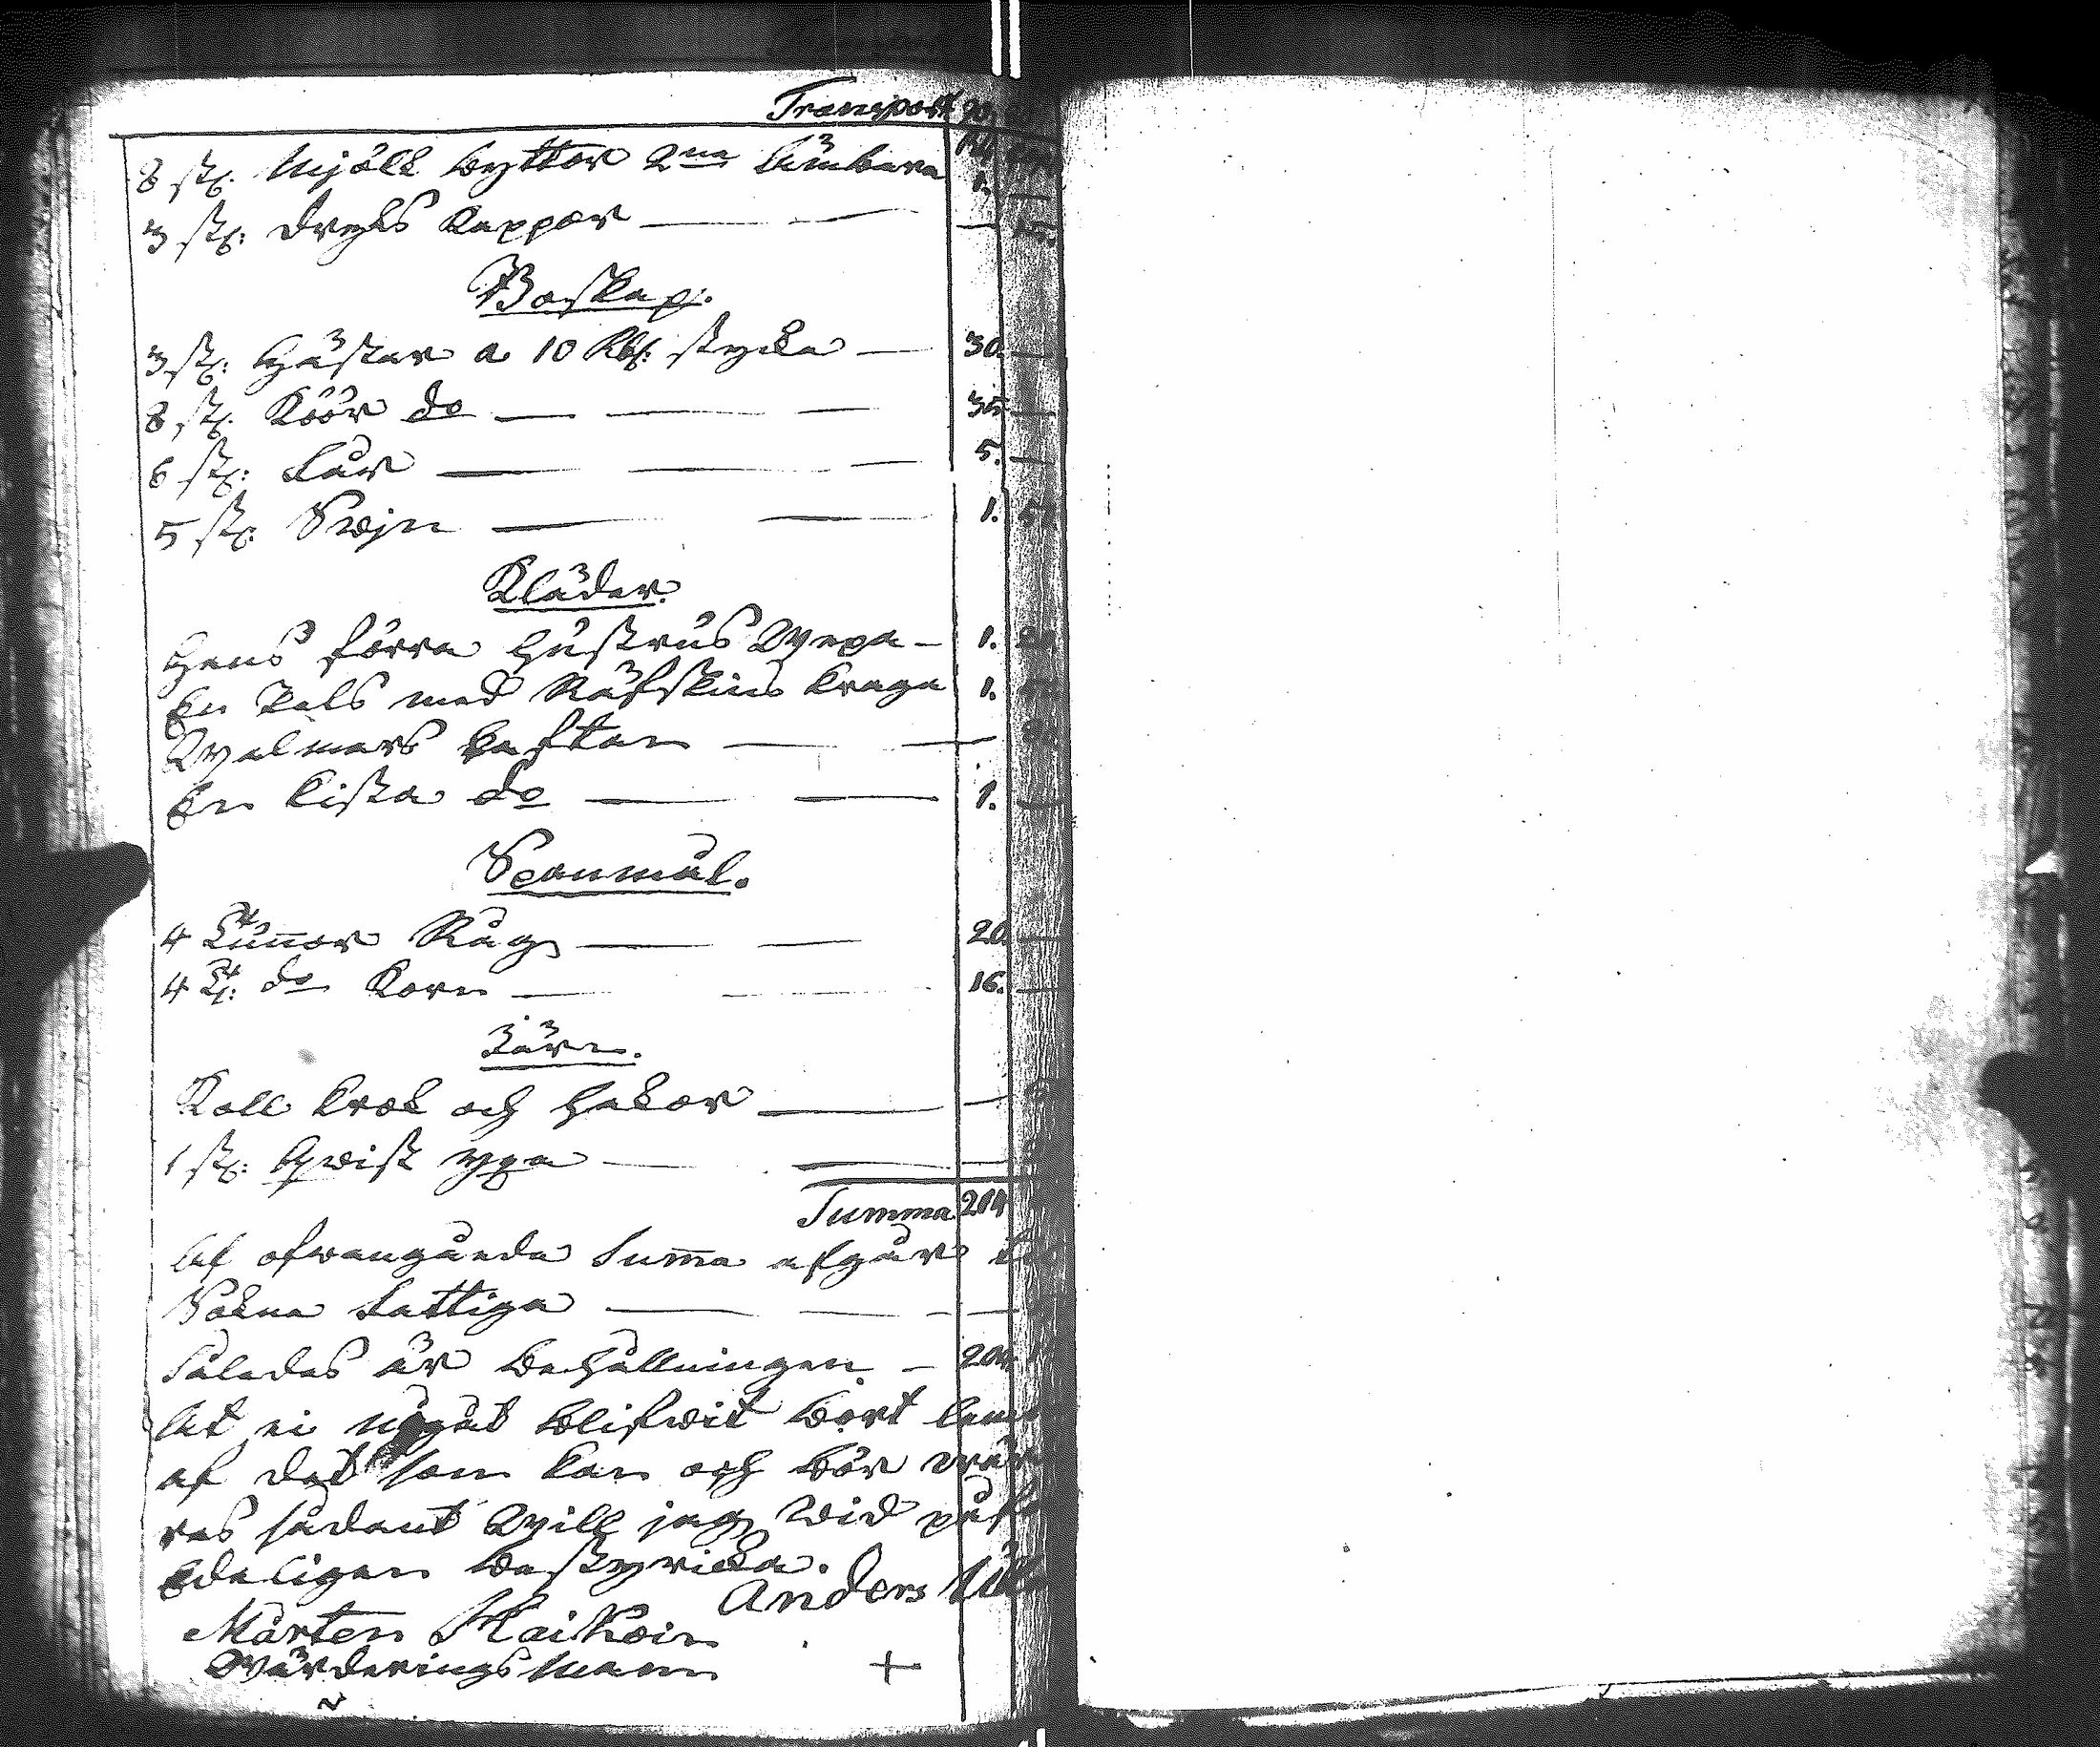 Transport
8 st: Mjölk byttor 2ne ämbara 1. —
3 st: dryks kappor — — —
Boskap.
3 st: Hästar a 10 Rb: stycke — 30. —
8 st: Köör do — — — 35 —
6 st: Får — — — 5. —
5 st: Swjn — — 1.
Kläder.
Hans förra Hustrus Wepa — 1.
En Pels med Räfskins kraga 1.
Walmars kaftan — —
En kista do — — 1. —
Spanmål.
4 Tunnor Råg — — 20. —
4 T: do Korn — — 16. —
Järn.
Koll krok och hakor — —
1 st: qwist yxa — — —
Summa 214
Af ofwangående Summa afgår
Sokne Fattiga — — — —
Således är behållningen — 204
At ei någåt blifwit bort
af det som kan och bör
ras sådant Will jag wid
Edeligen bestyrcka.
Anders
Mårten Kaikoin
Wärderings Mann
+